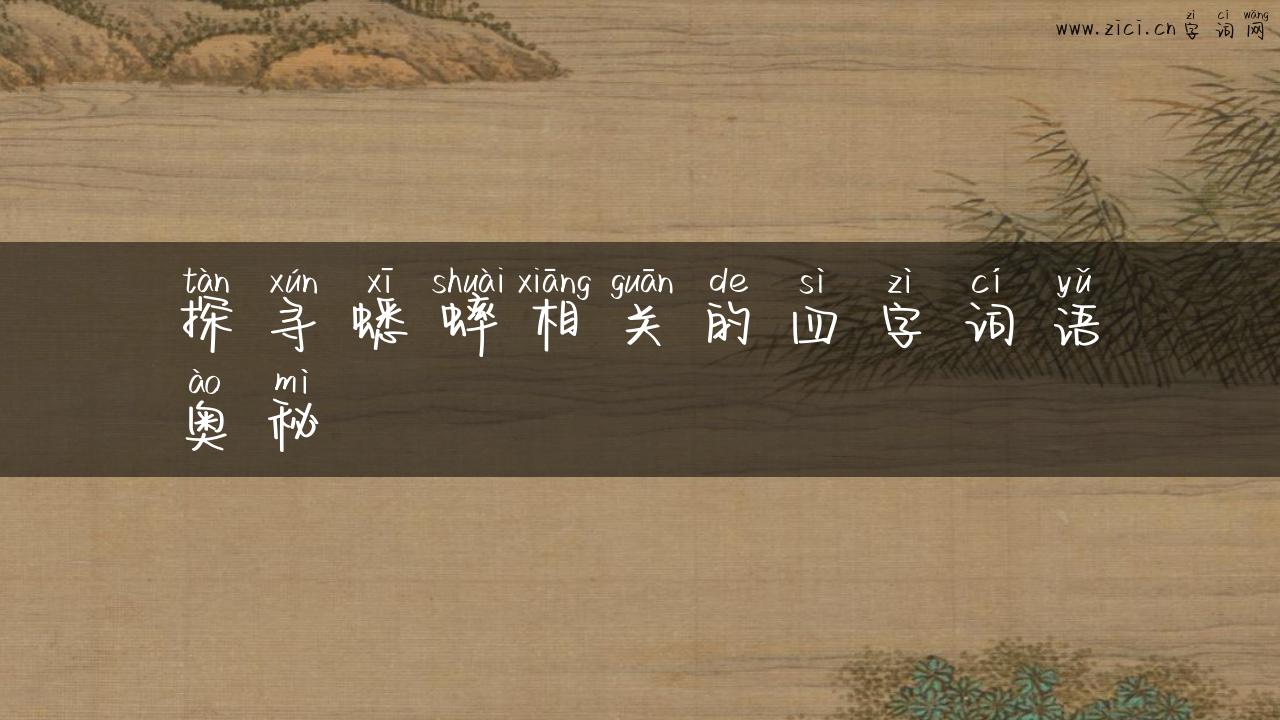 zì cí wǎng
www.zici.cn 字词网
tàn xún xī shuài xiāng guān de sì zì cí yǔ
探寻蟋蟀相关的四字词语
ào mì
奥秘